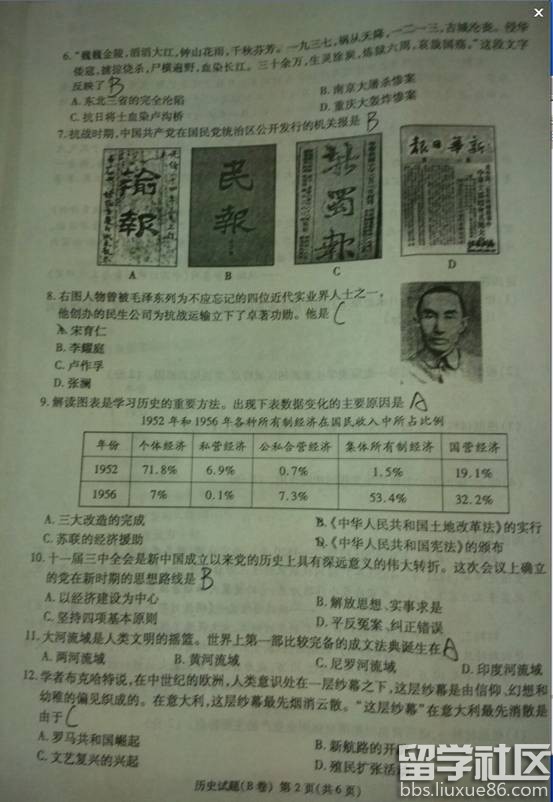 6. “巍巍金陵，滔滔大江，钟山花雨，千秋芬芳。一九三七，祸从天降，一二一三，古城沦丧。侵华
倭寇，掳掠烧杀，尸横遍野，血染长江。三十余万，生灵涂炭，炼狱六周，哀恸国殇。”这段文字
反映了 B
A. 东北三省的完全沦陷
B. 南京大屠杀惨案
C. 抗日将士血染卢沟桥
D. 重庆大轰炸惨案
7. 抗战时期，中国共产党在国民党统治区公开发行的机关报是 B
渝報
民報
新蜀報
新華日報
A
B
C
D
8. 右图人物曾被毛泽东列为不应忘记的四位近代实业界人士之一，
他创办的民生公司为抗战运输立下了卓著功勋。他是 C
A. 宋育仁
B. 李耀庭
C. 卢作孚
D. 张澜
9. 解读图表是学习历史的重要方法。出现下表数据变化的主要原因是 A
1952 年和 1956 年各种所有制经济在国民收入中所占比例
年份 个体经济 私营经济 公私合营经济 集体所有制经济 国营经济
1952 71.8% 6.9% 0.7% 1.5% 19.1%
1956 7% 0.1% 7.3% 53.4% 32.2%
A. 三大改造的完成
B.《中华人民共和国土地改革法》的实行
C. 苏联的经济援助
D.《中华人民共和国宪法》的颁布
10. 十一届三中全会是新中国成立以来党的历史上具有深远意义的伟大转折。这次会议上确立
的党在新时期的思想路线是 B
A. 以经济建设为中心
B. 解放思想、实事求是
C. 坚持四项基本原则
D. 平反冤案、纠正错误
11. 大河流域是人类文明的摇篮。世界上第一部比较完备的成文法典诞生在 A
A. 两河流域
B. 黄河流域
C. 尼罗河流域
D. 印度河流域
12. 学者布克哈特说，在中世纪的欧洲，人类意识处在一层纱幕之下，这层纱幕是由信仰、幻想和
幼稚的偏见织成的。在意大利，这层纱幕最先烟消云散。“这层纱幕”在意大利最先消散是
由于 C
A. 罗马共和国崛起
B. 新航路的开
C. 文艺复兴的兴起
D. 殖民扩张活
历史试题(B卷) 第 2 页(共 6 页)
留学社区
bbs.liuxue86.com